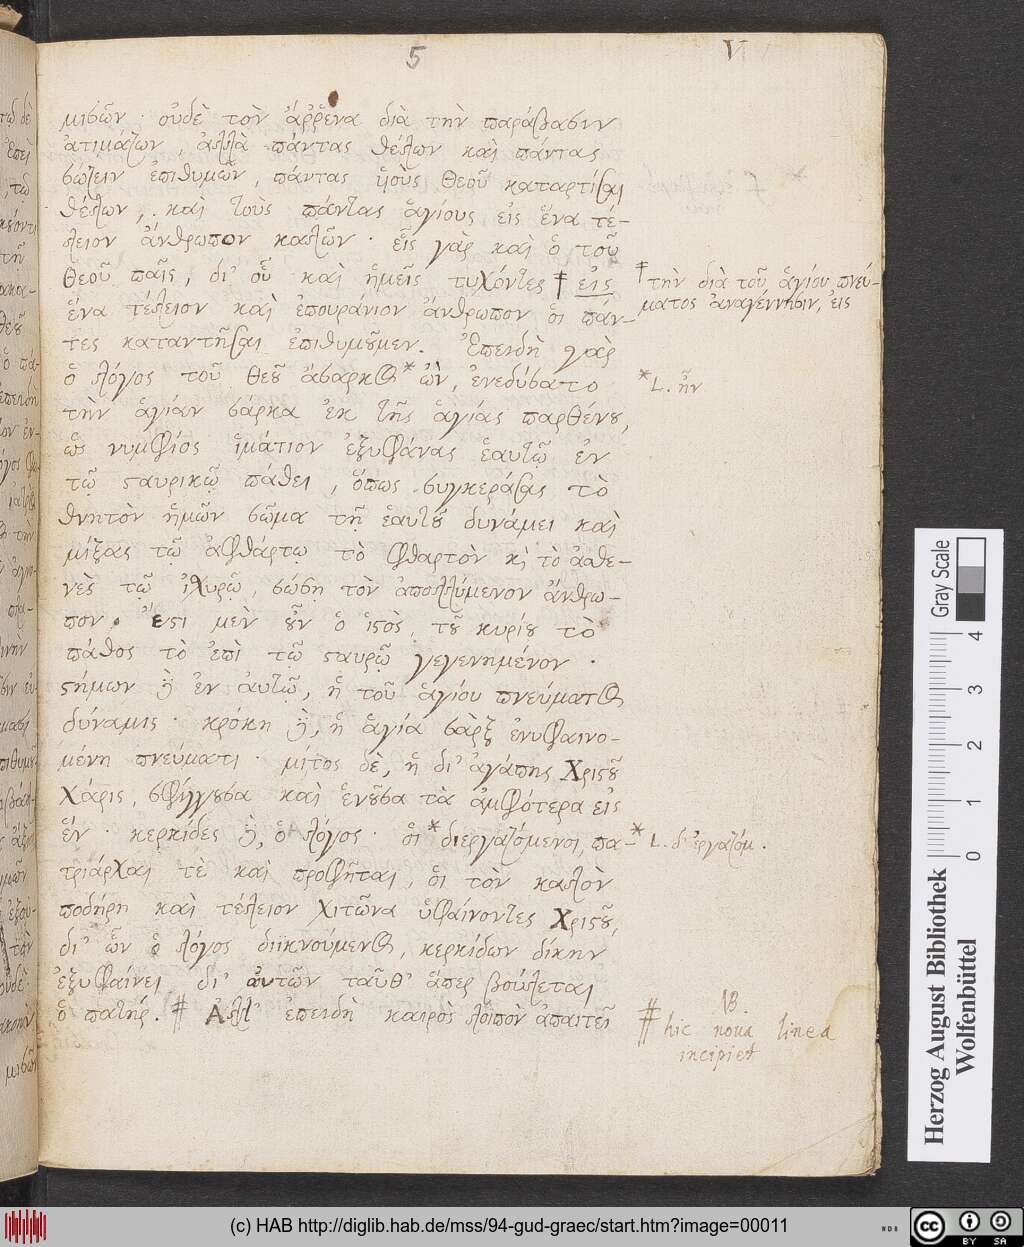 5
VI
μισῶν · οὐδὲ τὸν ἄῤῥενα διὰ τὴν παράβασιν
ἀτιμάζων, ἀλλὰ πάντας θέλων καὶ πάντας
σώζειν ἐπιθυμῶν, πάντας ὑιοὺς Θεοῦ καταρτίσαι
θέλων, καὶ τοὺς πάντας ἁγίους εἰς ἕνα τέ-
λειον ἄνθρωπον καλῶν · εἷς γὰρ καὶ ὁ τοῦ
Θεοῦ παῖς, δι' οὗ καὶ ἡμεῖς τυχόντες ǂ εἰς
ǂ τὴν διὰ τοῦ ἁγίου πνεύ-
ματος ἀναγέννησιν, εἰς
ἕνα τέλειον καὶ ἐπουράνιον ἄνθρωπον ὁι πάν-
τες καταντῆσαι ἐπιθυμοῦμεν. Ἐπειδὴ γὰρ
ὁ λόγος τοῦ Θεοῦ ἄσαρκος * ὢν, ἐνεδύσατο
* L. ἦν
τὴν ἁγίαν σάρκα ἐκ τῆς ἁγίας παρθένου,
ὡς νυμφίος ἱμάτιον ἐξυφάνας ἑαυτῷ ἐν
τῷ σταυρικῷ πάθει, ὅπως συγκεράσας τὸ
θνητὸν ἡμῶν σῶμα τῇ ἑαυτοῦ δυνάμει καὶ
μίξας τῷ ἀφθάρτῳ τὸ φθαρτὸν κ̀ τὸ ἀσθε-
νὲς τῷ ἰσχυρῷ, σώσῃ τὸν ἀπολλύμενον ἄνθρω-
πον. Ἔστι μὲν οὖν ὁ ἱστὸς, τοῦ κυρίου τὸ
πάθος τὸ ἐπὶ τῷ σταυρῷ γεγενημένον ·
στήμων δὲ ἐν αὐτῷ, ἡ τοῦ ἁγίου πνεύματος
δύναμις · κρόκη δὲ, ἡ ἁγία σὰρξ ἐνυφαινο-
μένη πνεύματι · μίτος δὲ, ἡ δι' ἀγάπης Χριστοῦ
Χάρις, σφίγγουσα καὶ ἑνοῦσα τὰ ἀμφότερα εἰς
ἕν · κερκίδες δὲ, ὁ λόγος · ὁι * διεργαζόμενοι, πα-
* L. δ' ἐργαζόμ.
τριάρχαι τὲ καὶ προφῆται, ὁι τὸν καλὸν
ποδήρη καὶ τέλειον χιτῶνα ὑφαίνοντες Χριστοῦ,
δι' ὧν ὁ λόγος διικνούμενος, κερκίδων δίκην
ἐξυφαίνει δι' αὐτῶν ταῦθ' ἅπερ βούλεται
ὁ πατήρ. ⋕ Ἀλλ' ἐπειδὴ καιρὸς λοιπὸν ἀπαιτεῖ
NB.
⋕ hic noua linea
incipiet
Herzog August Bibliothek
Wolfenbüttel
0 1 2 3 4
Gray Scale
(c) HAB http://diglib.hab.de/mss/94-gud-graec/start.htm?image=00011
WDB
cc BY SA